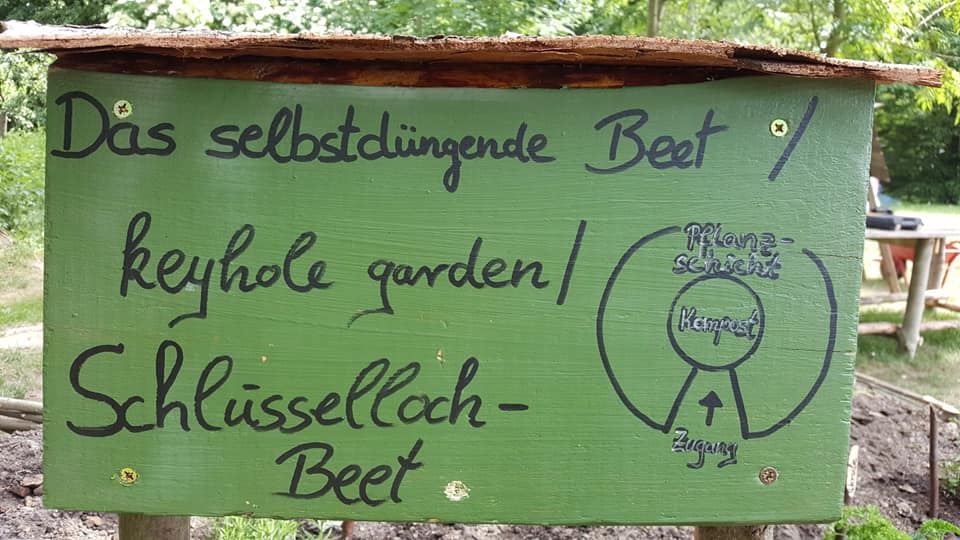 Das selbstdüngende Beet /
keyhole garden /
Schlüsselloch-
Beet
Pflanz-
schicht
Kompost
Zugang